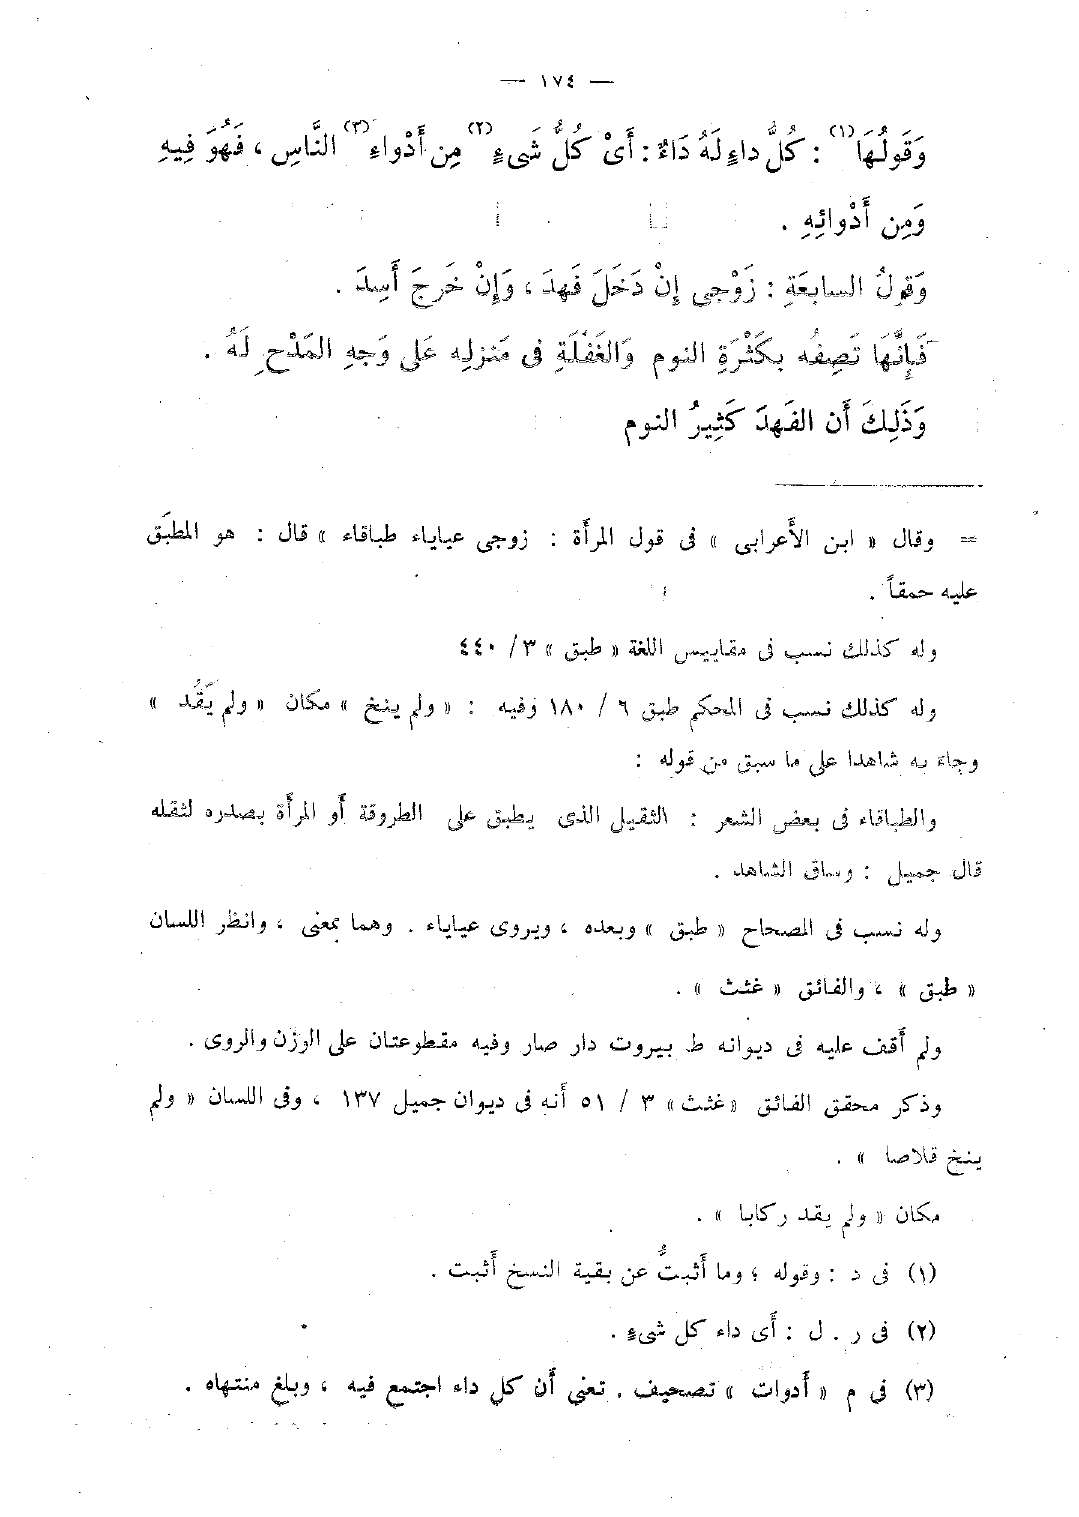 — ١٧٤ —
وَقَولُهَا (١) : كُلُّ داءٍ لَهُ دَاءٌ : أَىْ كُلُّ شَىءٍ (٢) مِن أَدْواءِ (٣) النَّاسِ ، فَهُوَ فِيهِ
وَمِن أَدْوائِهِ .
وَقَولُ السابعَةِ : زَوْجى إِنْ دَخَلَ فَهِدَ ، وَإِنْ خَرجَ أَسِدَ .
فَإِنَّهَا تَصِفُه بكَثْرَةِ النوم وَالغَفْلَةِ فى مَنزلِه عَلى وَجهِ المَدْحِ لَهُ .
وَذَلِكَ أَن الفَهدَ كَثِيرُ النوم
= وقال « ابن الأَعرابى » فى قول المرأَة : زوجى عياياء طباقاء » قال : هو المطبَق
عليه حمقاً .
وله كذلك نسب فى مقاييس اللغة « طبق » ٣/ ٤٤٠
وله كذلك نسب فى المحكم طبق ٦ / ١٨٠ وفيه : « ولم ينخ » مكان « ولم يَقُد »
وجاء به شاهدا على ما سبق من قوله :
والطباقاء فى بعض الشعر : الثقيل الذى يطبق على الطروقة أَو المرأَة بصدره لثقله
قال جميل : وساق الشاهد .
وله نسب فى الصحاح « طبق » وبعده ، ويروى عياياء . وهما بمعنى ، وانظر اللسان
« طبق » ، والفائق « غثث » .
ولم أَقف عليه فى ديوانه ط بيروت دار صار وفيه مقطوعتان على الوزن والروى .
وذكر محقق الفائق «غثث» ٣ / ٥١ أَنه فى ديوان جميل ١٣٧ ، وفى اللسان « ولم
ينخ قلاصا » .
مكان « ولم يقد ركابا » .
(١) فى د : وقوله ؛ وما أَثبتُّ عن بقية النسخ أَثبت .
(٢) فى ر . ل : أَى داء كل شىءٍ .
(٣) فى م « أَدوات » تصحيف . تعنى أَن كل داء اجتمع فيه ، وبلغ منتهاه .